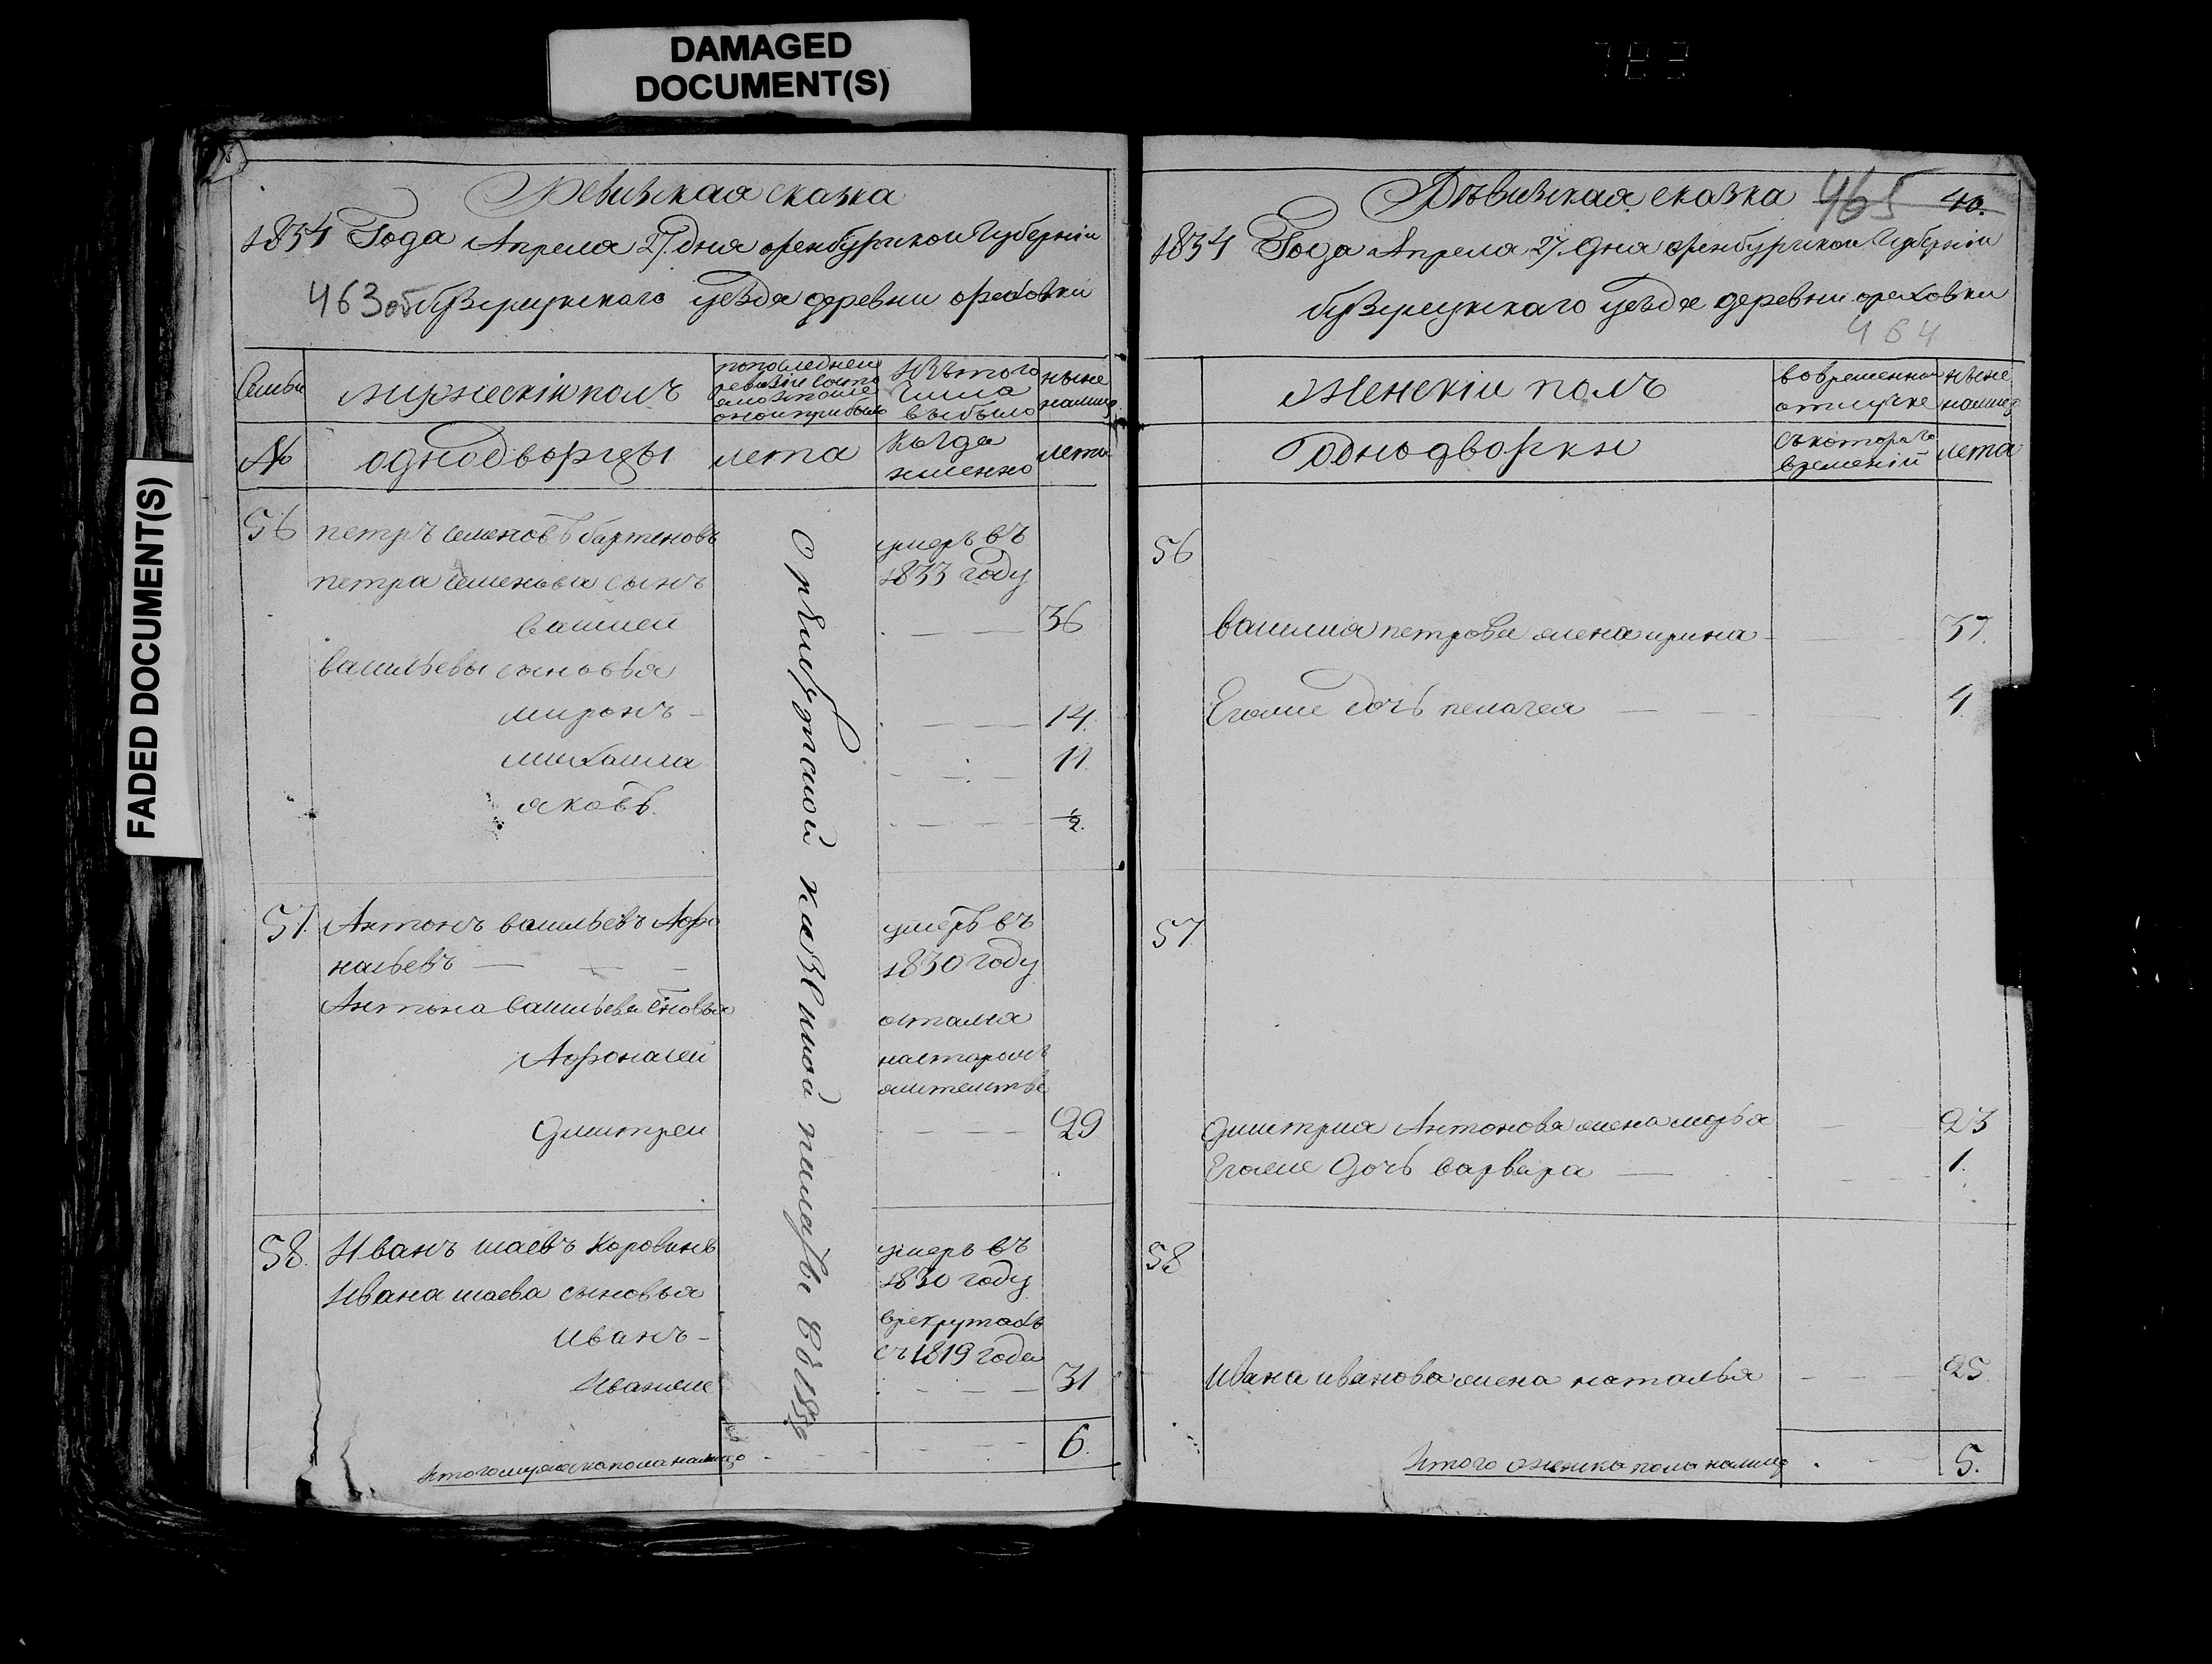 DAMAGED
DOCUMENT(S)
FADED DOCUMENT(S)
Ревизкая сказка
1834 Года Апреля 27 дня оренбургской Губернии
463об бузулукского уезда деревни ореховки
Семьи
мужескій полъ
по последней
ревизіи состо
яло и после
оной прибыло
Изъ того
числа
выбыло
ныне
налицо
№
однодворцы
лета
Когда
именно
лета
56 петръ семеновъ бартеновъ
умеръ въ
1833 году
петра семенова сынъ
василей 36
васильевы сыновья
миронъ 14.
михаила 11
яковъ. 2.
57. Антонъ васильевъ Афо
насьевъ
умеръ въ
1830 году
Антона васильева сновья
Афонасей
остался
на старомъ
жительстве
дмитреи 29
58. Иванъ исаевъ Коровинъ
умеръ въ
1830 году
Ивана исаева сыновья
иванъ
в рекрутахъ
съ 1819 года
Иванже 31
Итого мужеска пола налицо 6.
казенной палаты
Ревизкая сказка 465 40.
1834 Года Апреля 27 Дня оренбургской Губерніи
бузулукского уезда деревни ореховки
464
Женскіи полъ
во временной
отлучке
ныне
налицо
однодворки
съ котораго
временій
лета
56
василия петрова жена ирина 37.
Егоже дочь пелагея 4
57
дмитрия Антонова жена марья 23
Егоже дочь варвара 1.
58
Ивана иванова жена наталья 25
Итого женска пола налицо 5.